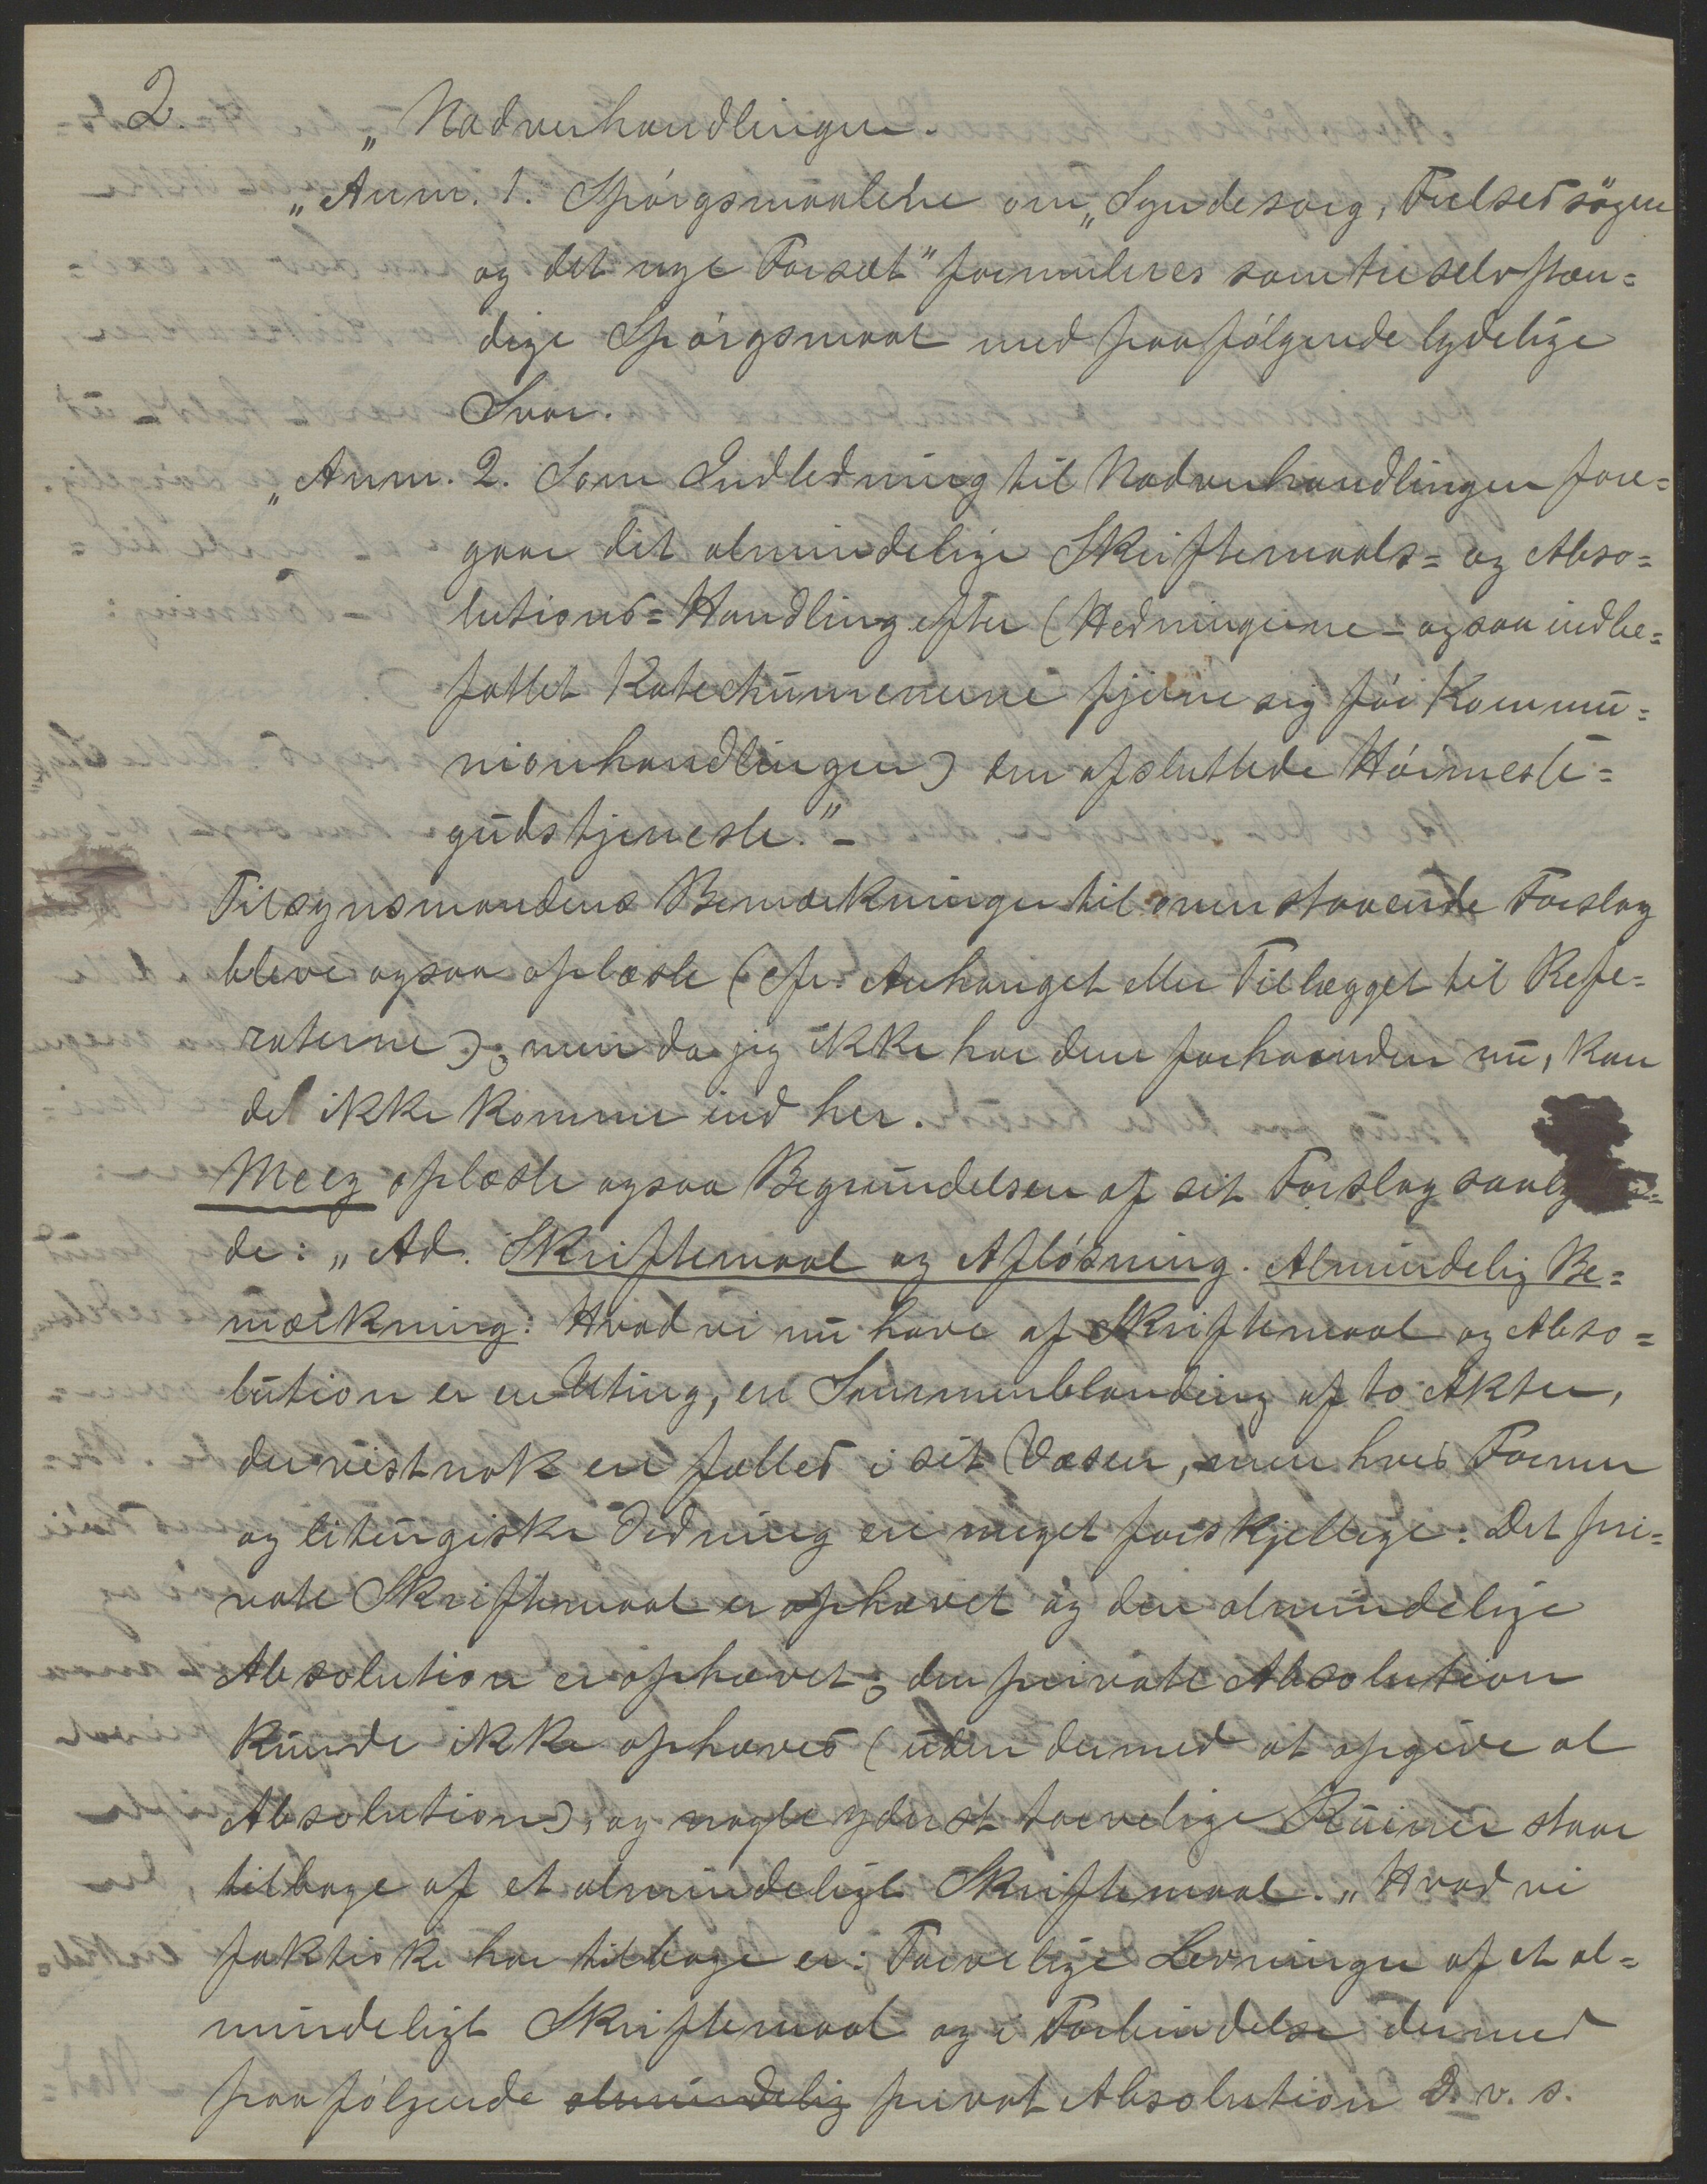 2.
„Nadverhandlingen.
„Anm. 1. Spörgsmaalene om „Syndesorg, Frelsessögen
og det nye Forsæt” formuleres som tre selvstæn=
dige Spörgsmaal med paafölgende lydelige
Svar.
„Anm. 2. Som Indledning til Nadverhandlingen fore=
gaar det almindelige Skriftemaals= og Abso=
lutions=Handling efter (Hedningerne – ogsaa indbe=
fattet Katechumenerne fjerne sig för Kommu=
nionhandlingen) den afsluttede Höimesse=
gudstjeneste.” –
Tilsynsmandens Bemærkninger til ovenstaaende Forslag
bleve ogsaa oplæste (cfr. Anhanget eller Tillægget til Refe=
raterne); men da jeg ikke har dem forhaanden nu, kan
det ikke komme ind her.
Meeg oplæste ogsaa Begrundelsen af sit Forslag
de: „Ad. Skriftemaal og Aflösning. Almindelig Be=
mærkning: Hvad vi nu have af Skriftemaal og Abso=
lution er en Uting, en Sammenblanding af to Akter,
der vistnok er fælles i sit Væsen, men hvis Former
og liturgiske Ordning er meget forskjellige: Det pri=
vate Skriftemaal er ophævet og den almindelige
Absolution er ophævet; den private Absolution
kunde ikke ophæves (uden dermed at opgive al
Absolution), og nogle yderst tarvelige Ruiner staar
tilbage af et almindeligt Skriftemaal. „Hvad vi
faktisk har tilbage er: Tarvelige Levninger af et al=
mindeligt Skriftemaal og i Forbindelse dermed
paafölgende almindelig privat Absolution D. v. s.